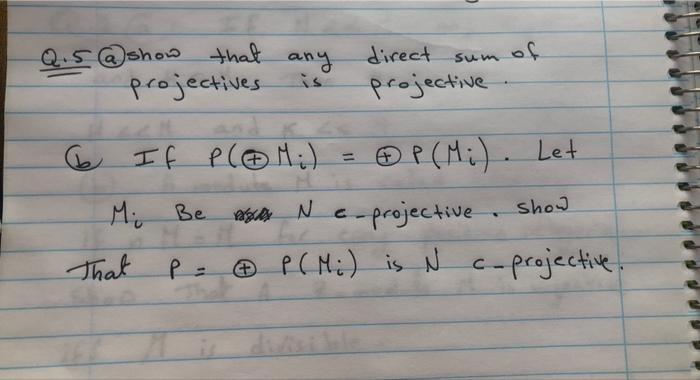 Q.5 ⓐ show that any direct sum of
projectives is projective.
ⓑ If P(⊕ Mᵢ) = ⊕ P(Mᵢ). Let
Mᵢ Be N c-projective. show
That P = ⊕ P(Mᵢ) is N c-projective.